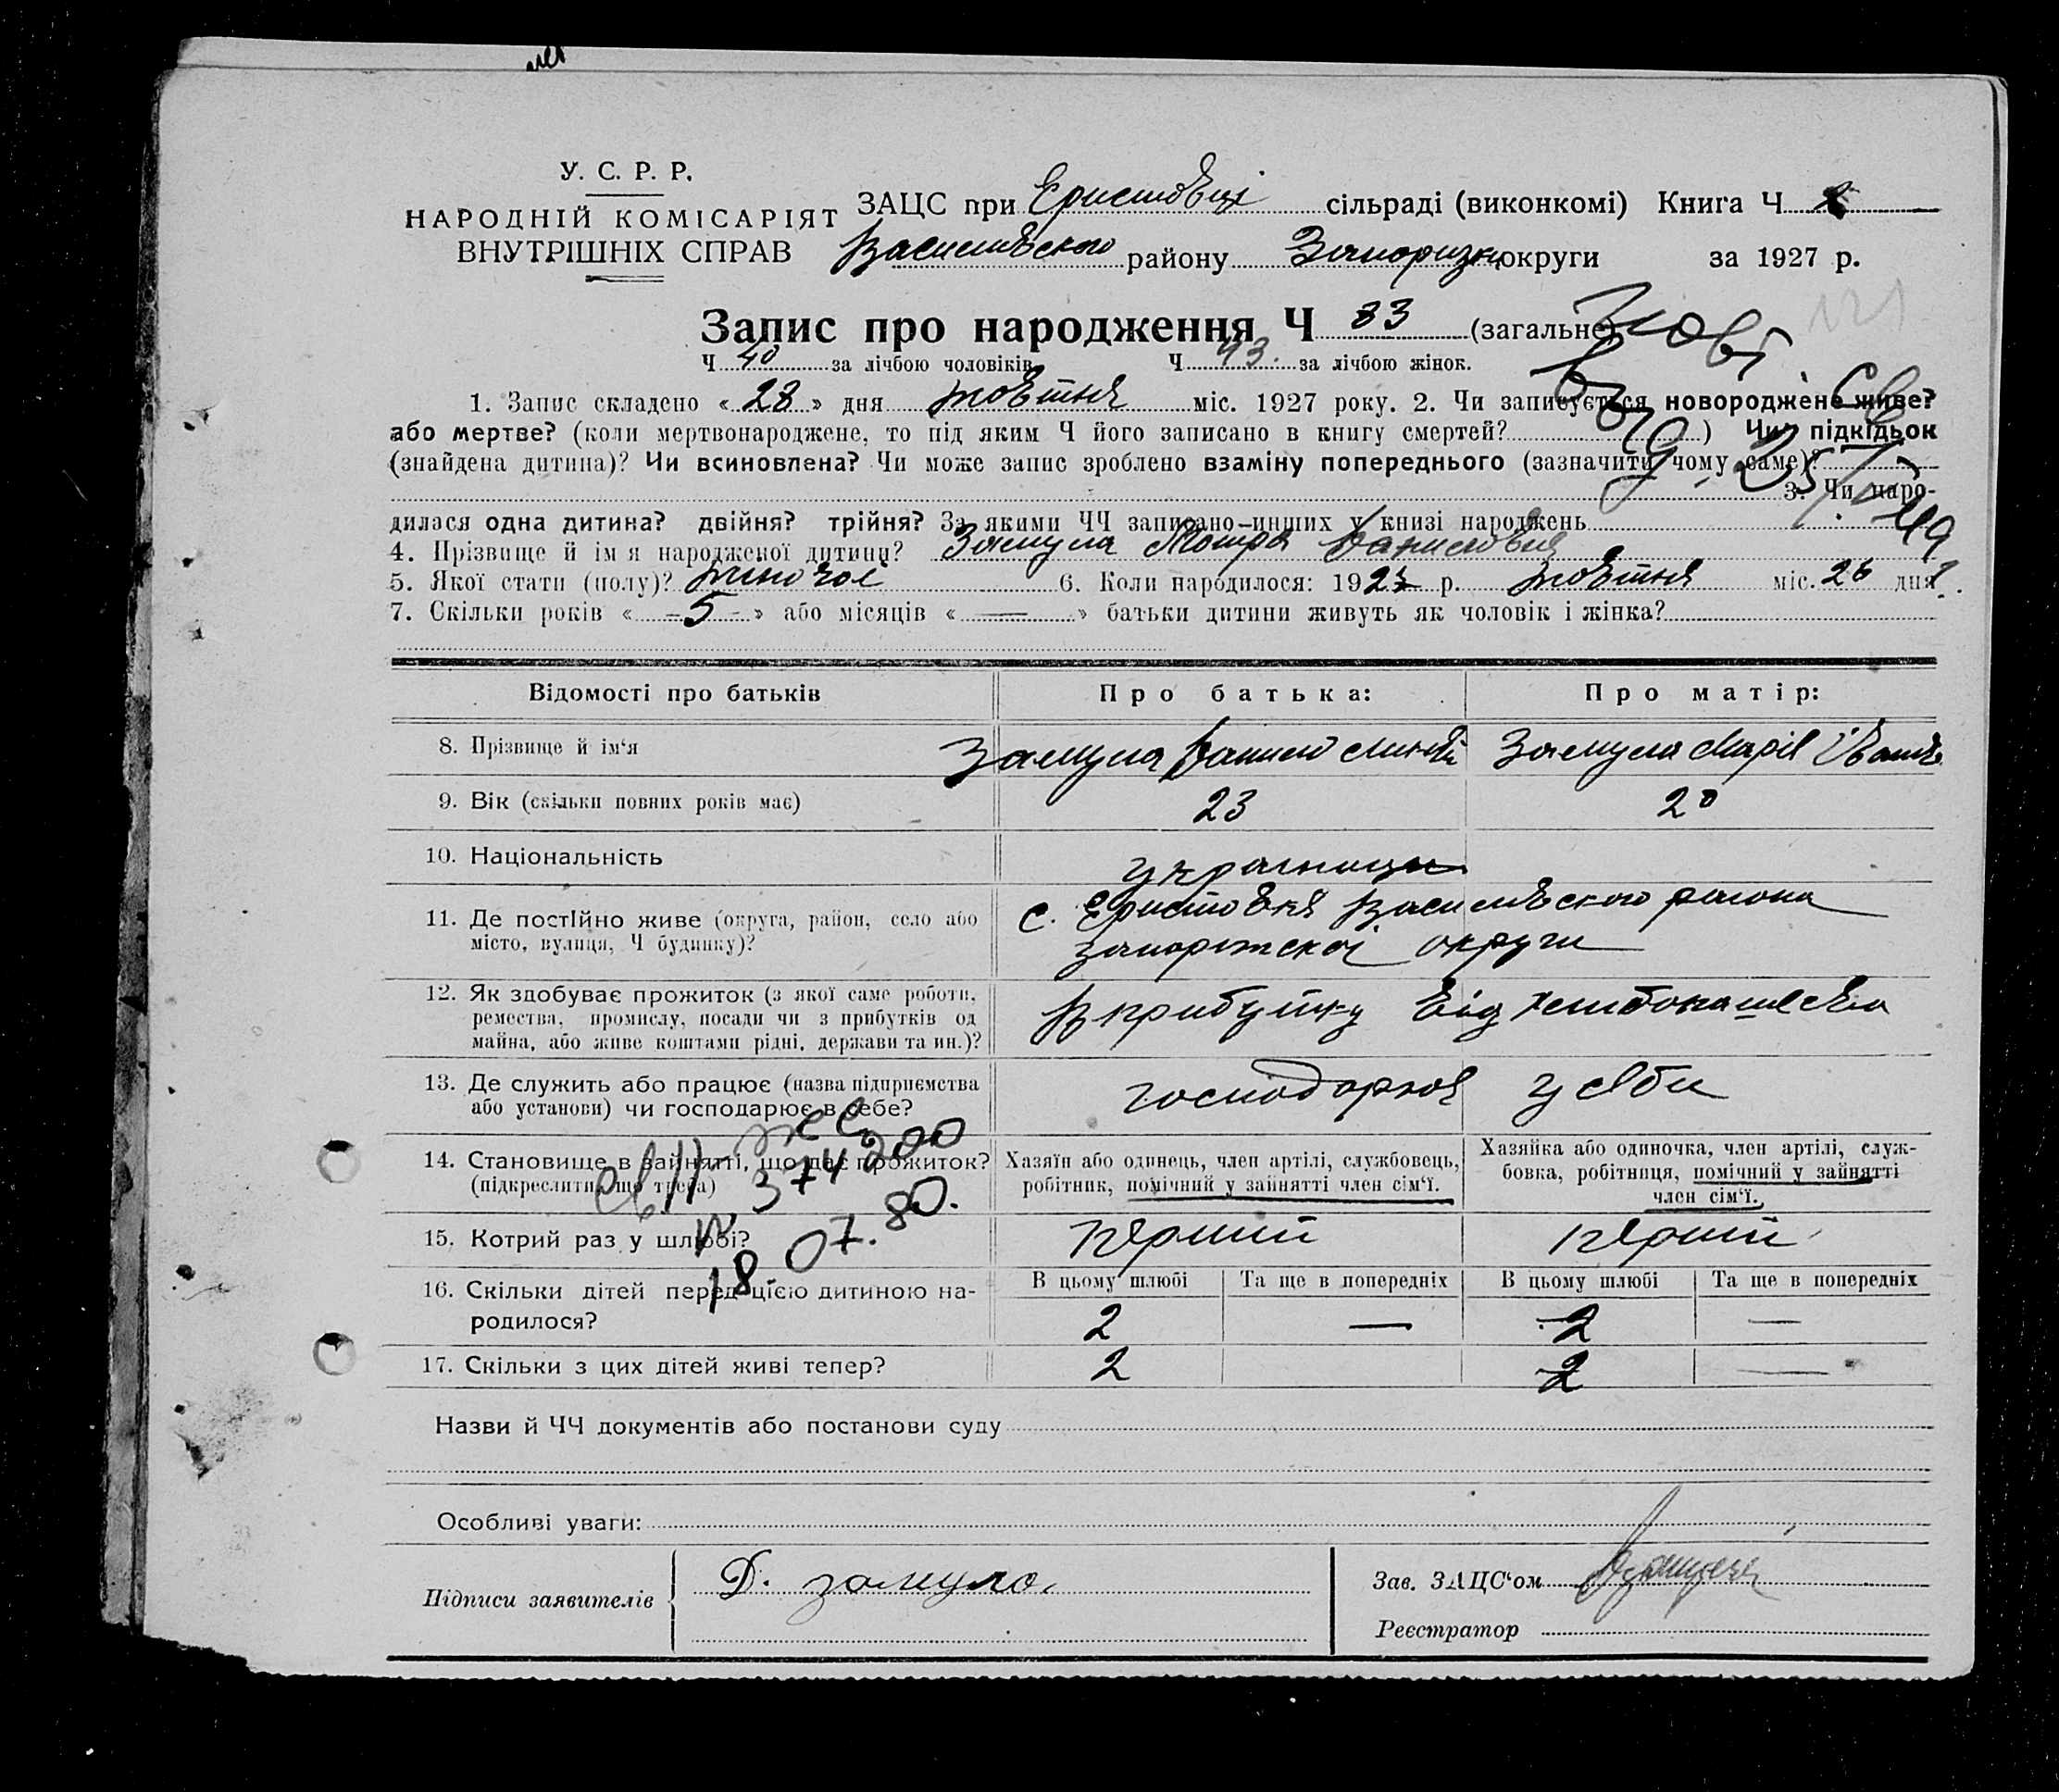 У. С. Р. Р.
НАРОДНІЙ КОМІСАРІЯТ
ВНУТРІШНІХ СПРАВ
ЗАЦС при Єристовці сільраді (виконкомі) Книга Ч
Василівського району Запоризьк округи за 1927 р.
Запис про народження Ч 83 (загальне)
Ч 40 за лічбою чоловіків Ч 43. за лічбою жінок.
1. Запис складено « 28 » дня жовтня міс. 1927 року. 2. Чи записується новороджене живе?
або мертве? (коли мертвонароджене, то під яким Ч його записано в книгу смертей? ) Чи підкідьок
(знайдена дитина)? Чи всиновлена? Чи може запис зроблено взаміну попереднього (зазначити чому саме)?
3. Чи наро-
дилася одна дитина? двійня? трійня? За якими ЧЧ записано инших у книзі народжень
4. Прізвище й ім я народженої дитини? Замула Мотря Даниловна
5. Якої стати (полу)? жиночої 6. Коли народилося: 1927 р. жовтня міс. 26 дня?
7. Скільки років « 5 » або місяців « — » батьки дитини живуть як чоловік і жінка?
Знові
вид. Св
25/V 49
Відомості про батьків Про батька: Про матір:
8. Прізвище й ім‘я Замула Данило Замула Марія Іванів
9. Вік (скільки повних років має) 23 20
10. Національність украинци
11. Де постІйно живе (округа, район, село або
місто, вулиця, Ч будинку)?
с. Єристовка Василівського района
запоріжскої округи
12. Як здобуває прожиток (з якої саме роботи,
ремества, промислу, посади чи з прибутків од
майна, або живе коштами рідні, держави та ин.)?
В прибутку від хлибопашєства
13. Де служить або працює (назва підприємства
або установи) чи господарює в себе?
господарює у себи
14. Становище в зайнятті, що дає прожиток?
(підкреслити що треба)
Хазяїн або одинець, член артілі, службовець,
робітник, помічний у зайнятті член сім‘ї.
Хазяйка або одиночка, член артілі, служ-
бовка, робітниця, помічний у зайнятті
член сім‘ї.
374200
18 07. 80.
15. Котрий раз у шлюбі? перший перший
16. Скільки дітей перед цією дитиною на-
родилося?
В цьому шлюбі Та ще в попередніх В цьому шлюбі Та ще в попередніх
2 — 2 —
17. Скільки з цих дітей живі тепер? 2 2 —
Назви й ЧЧ документів або постанови суду
Особливі уваги:
Підписи заявителів Д. замула.
Зав. ЗАЦС‘ом
Реєстратор